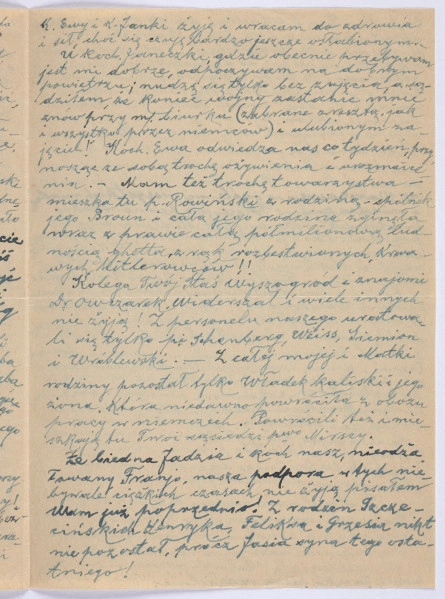 K. Ewy i K. Janki żyję i wracam do zdrowia
i sił, choć się czuję bardzo jeszcze osłabionym.
U Koch. Janeczki, gdzie obecnie przebywam
jest mi dobrze, odpoczywam na dobrym
powietrzu; nudzę się tylko bez zajęcia, a są-
dziłem, że koniec wojny zastanie mnie
znów przy m. biurku (zabrane zresztą, jak
i wszystko przez niemców) i ulubionym za-
jęciu! Koch. Ewa odwiedza nas co tydzień, przy-
nosząc ze sobą trochę ożywienia i urozmaice-
nia. — Mam też trochę towarzystwa —
mieszka tu p. Rowiński z rodziną — spólnik
jego Broun i cała jego rodzina zginęła
wraz z prawie całą półmilionową lud-
nością ghetta, z rąk rozbestwionych, krwa-
wych hitlerowców!!
Kolega Twój Staś Wyszogród i znajomi
Dr Owczarek, Widerszal i wiele innych
nie żyją! Z personelu naszego uratowa-
li się tylko pp. Schönberg, Weiss, Ziemion
i Wróblewski. — Z całej mojej i Matki
rodziny pozostał tylko Władek Kaliski i jego
żona, która niedawno powróciła z obozu
pracy w niemczech. Powrócili też i mie-
szkają tu Twoi sąsiedzi pwo Mirscy.
Że biedna Jadzia i koch. nasz, nieodża-
łowany Franjo, nasza podpora w tych nie-
bywale ciężkich czasach nie żyją pisałem
Wam już poprzednio! Z rodzin Szcze-
cińskich Henryka, Feliksa i Grzesia nikt
nie pozostał, prócz Jasia syna tego osta-
tniego!